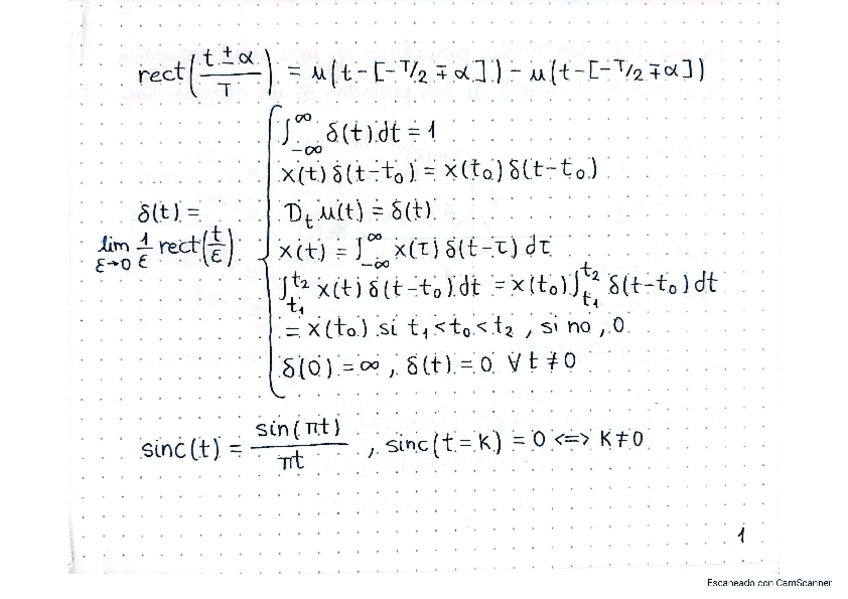 rect(t ± α / T) = u(t - [-T/2 ∓ α]) - u(t - [-T/2 ∓ α])
∫_{-∞}^{∞} δ(t) dt = 1
x(t) δ(t - t₀) = x(t₀) δ(t - t₀)
δ(t) =
D_t u(t) = δ(t)
lim_{ε→0} 1/ε rect(t/ε)
x(t) = ∫_{-∞}^{∞} x(τ) δ(t - τ) dτ
∫_{t₁}^{t₂} x(t) δ(t - t₀) dt = x(t₀) ∫_{t₁}^{t₂} δ(t - t₀) dt
= x(t₀) si t₁ < t₀ < t₂ , si no , 0
δ(0) = ∞ , δ(t) = 0 ∀ t ≠ 0
sinc(t) = sin(πt) / πt , sinc(t = K) = 0 <=> K ≠ 0
1
Escaneado con CamScanner